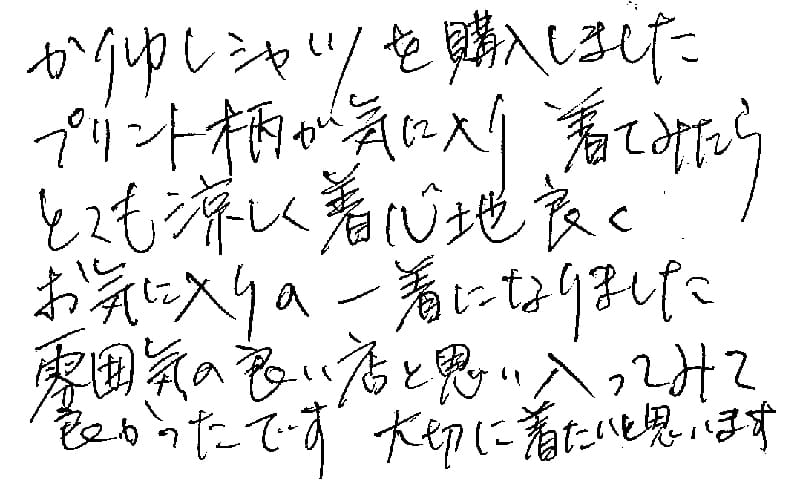 かりゆしシャツを購入しました
プリント柄が気に入り 着てみたら
とても涼しく着心地良く
お気に入りの一着になりました
雰囲気の良い店と思い入ってみて
良かったです 大切に着たいと思います